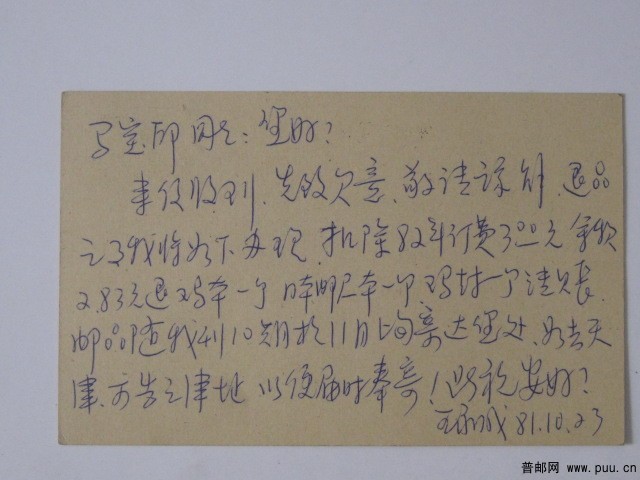 马宝印同志：您好？
来信收到，先致欠意，敬请谅解，退品
之事我将如下办理，扣除82年订费3.00元余款
2.83元退鸡本一个 日本邮
邮品随我刊10期月于11月上旬寄达您处，如去天
津，方告之津址 以便届时奉寄！此祝安好？
81.10.23
普邮网 www.puu.cn